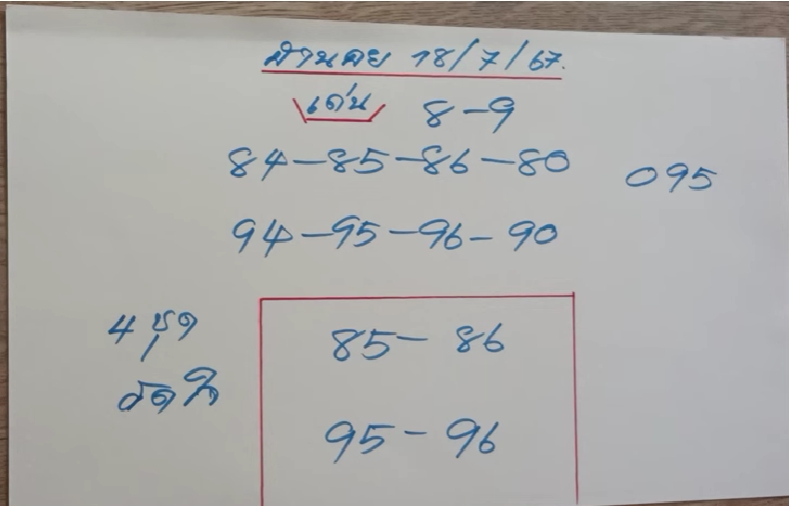 ฮานอย 18/7/67.
เด่น 8-9
84-85-86-80
095
94-95-96-90
4 ชุด
85-86
95-96